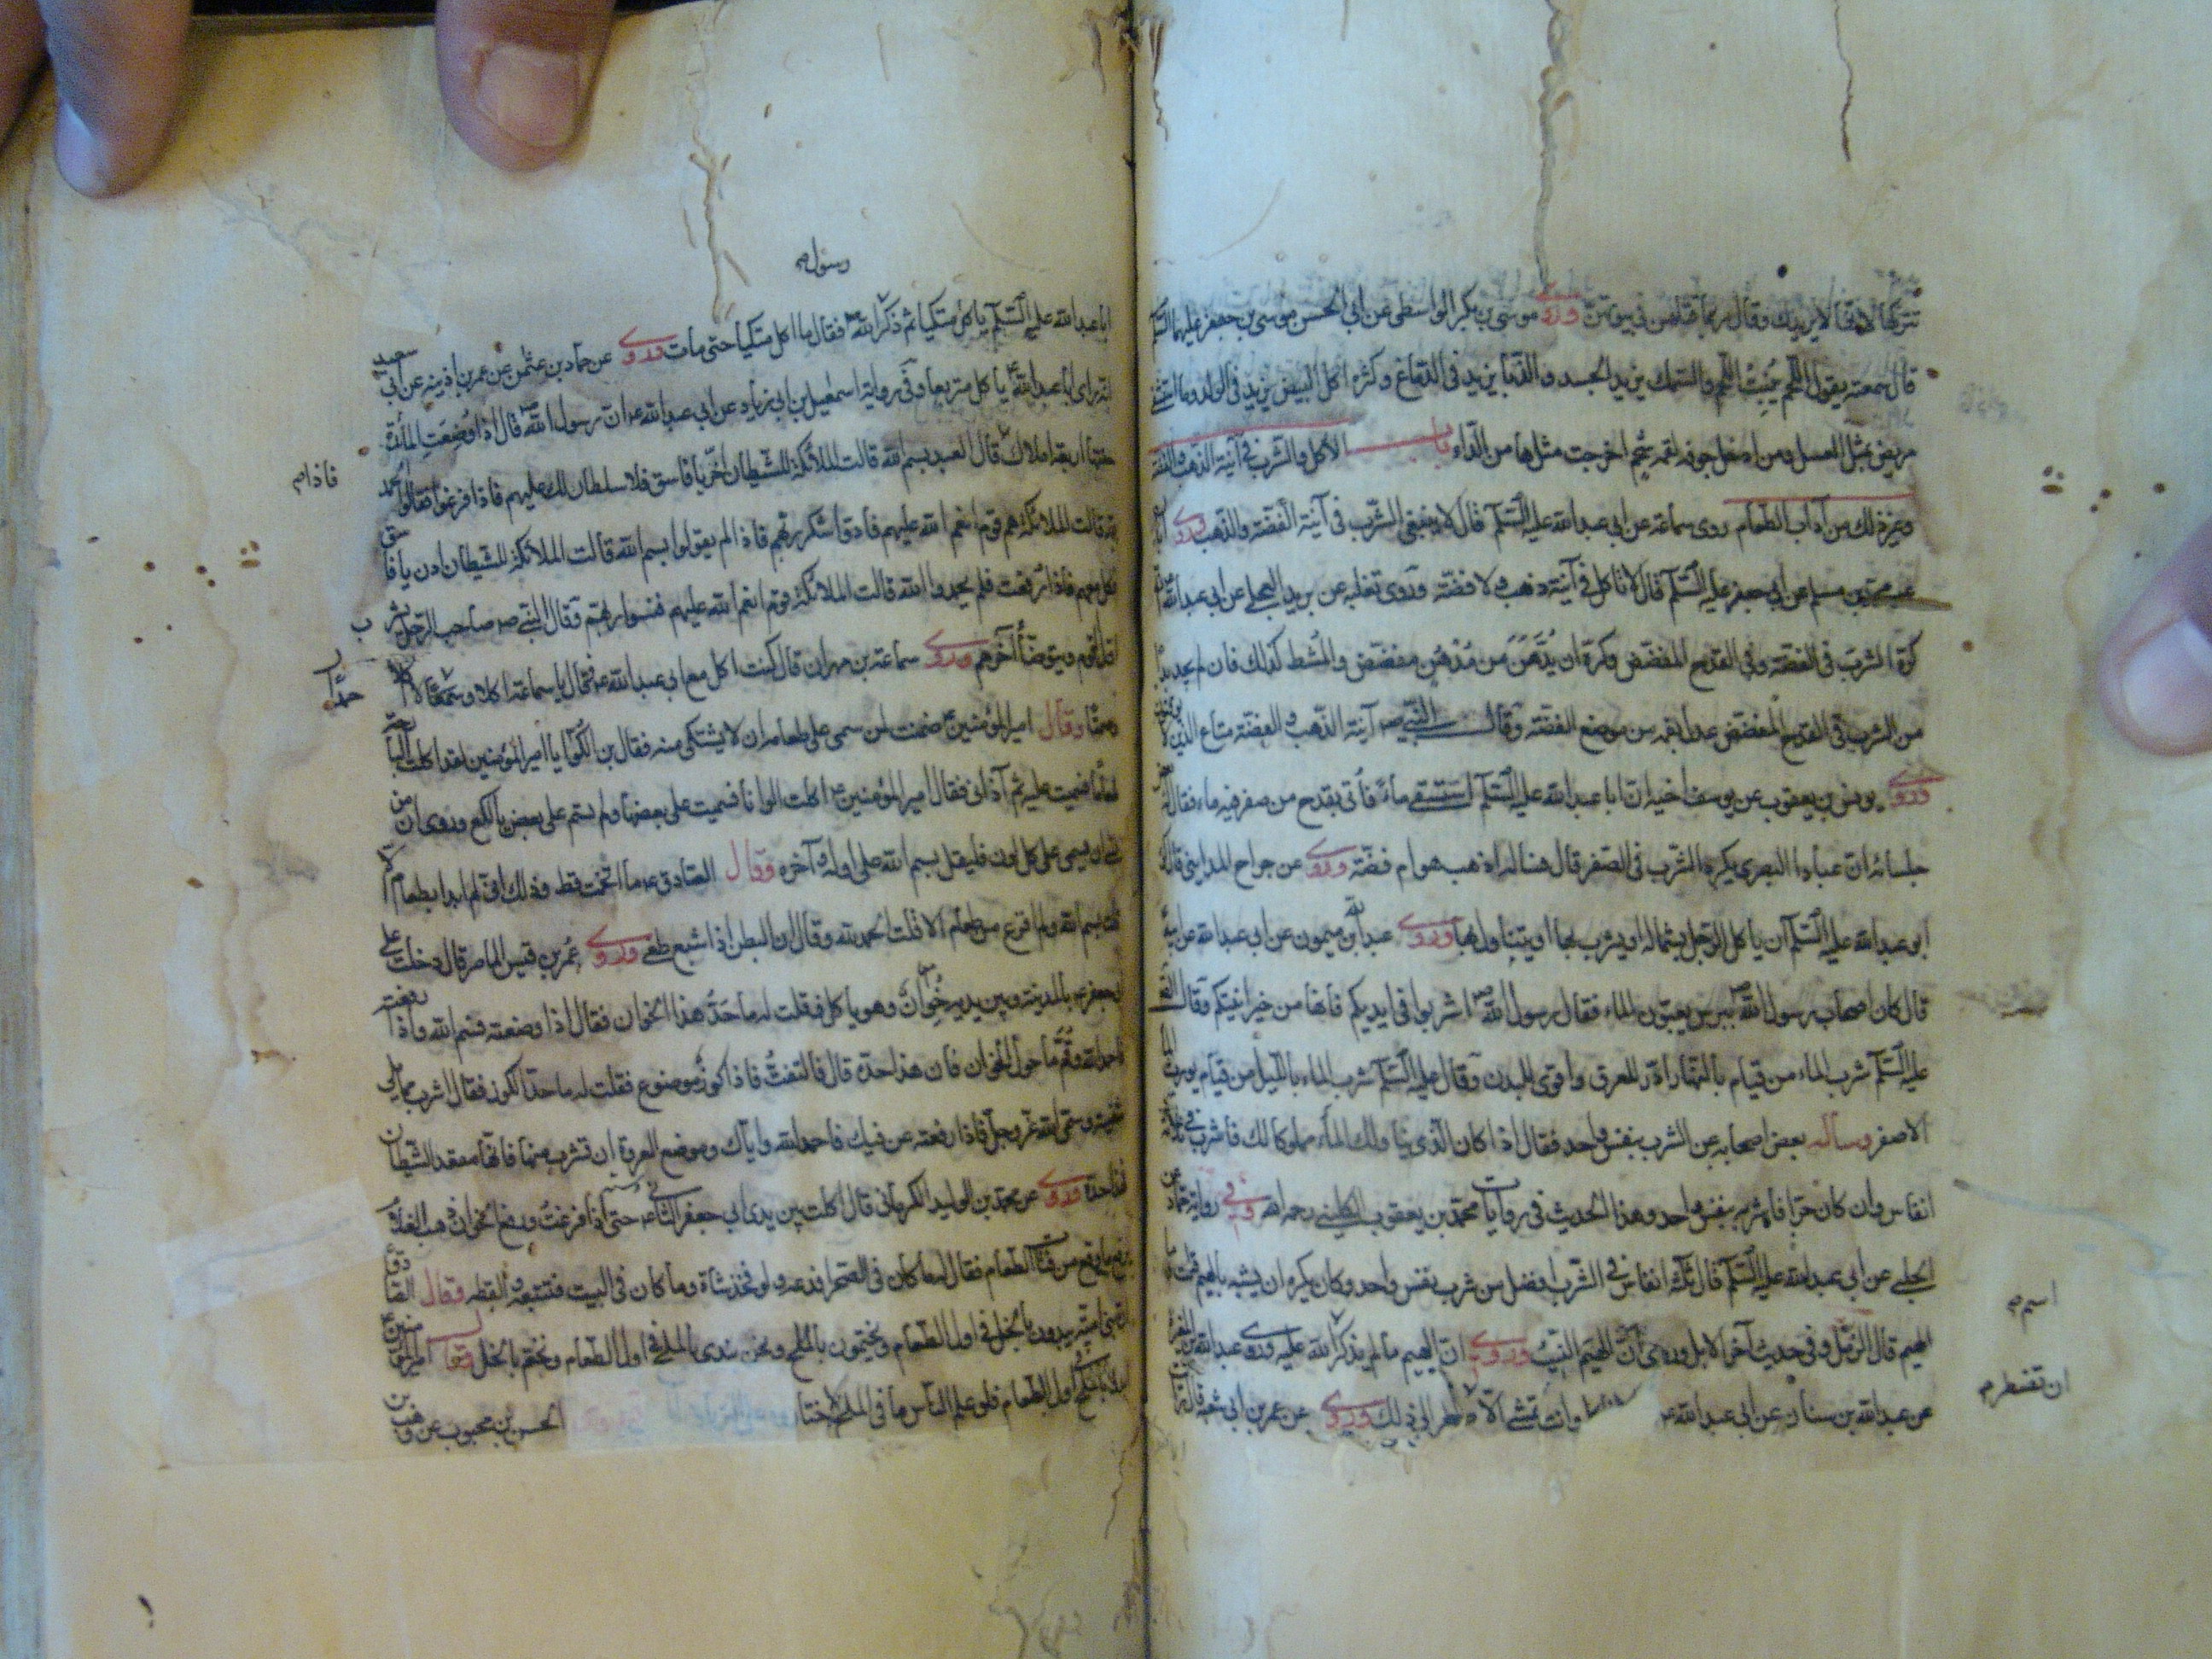 تتركها لانها لا يزيدك وقال ربما قتلهن في بيوتهن وروى موسى بن بكر الواسطي عن ابي الحسن موسى بن جعفر عليهما
قال سمعته يقول اللحم ينبت اللحم والسمك يذيب الجسد والدبا يزيد في الدماغ وكثرة اكل البيض يزيد في الولد وما استشفى
مريض بمثل العسل ومن ادخل جوفه لقمة شحم اخرجت مثلها من الداء باب الاكل والشرب في آنية الذهب والفضة
وغير ذلك من آداب الطعام روى سماعة عن ابي عبد الله عليه السلام قال لا ينبغي الشرب في آنية الفضة والذهب وروى
عن محمد بن مسلم عن ابي جعفر عليه السلام قال لا تاكل في آنية ذهب ولا فضة وروى ثعلبة عن بريد العجلي عن ابي عبد الله
كره الشرب في الفضة وفي القدح المفضض وكره ان يدهن من مدهن مفضض والمشط كذلك فان لم يجد بدا
من الشرب في القدح المفضض عدل بفمه عن موضع الفضة وقال النبي ص آنية الذهب والفضة متاع الذين لا
وروى يونس بن يعقوب عن يوسف اخيه ان ابا عبد الله عليه السلام استسقى ماء فأتى بقدح من صفر فيه ماء فقال له
جلسائه ان عباد البصري يكره الشرب في الصفر قال فسأله اذهب هو ام فضة وروى عن جراح المدايني قال كره
ابو عبد الله عليه السلام ان ياكل الرجل بشماله او يشرب بها او يتناول بها وروى عبد الله بن ميمون عن ابي عبد الله عن ابيه
قال كان اصحاب رسول الله ص بتبوك يعبون الماء فقال رسول الله ص اشربوا في ايديكم فانها من خير آنيتكم وقال
عليه السلام شرب الماء من قيام بالنهار ادر للعرق واقوى للبدن وقال عليه السلام شرب الماء بالليل من قيام يورث
الاصفر وساله بعض اصحابه عن الشرب بنفس واحد فقال اذا كان الذي يناولك الماء مملوكا لك فاشرب في ثلثة
انفاس وان كان حرا فاشربه بنفس واحد وهذا الحديث في روايات محمد بن يعقوب الكليني رحمه الله وفي رواية حماد عن
الحلبي عن ابي عبد الله عليه السلام قال ثلثة انفاس في الشرب افضل من شرب بنفس واحد وكان يكره ان يشبه بالهيم قلت وما
الهيم قال الرمل وفي حديث آخر الابل وروى ان الهيم النيب وروى ان الهيم ما لم يذكر الله عليه وروى عبد الله بن المغيرة
عن عبد الله بن سنان عن ابي عبد الله ع وانت تمشي الا ان تضطر الى ذلك وروى عن عمر بن ابي شعبة قال رايت
اسم ص
ان تضطر ص
رسول ص
ابا عبد الله عليه السلام ياكل متكيا ثم ذكر الله ص فقال ما اكل متكيا حتى مات وروى عن حماد بن عثمن عن عمر بن اذينه عن ابي سعيد
انه راى ابا عبد الله ع ياكل متربعا وفي رواية اسمعيل بن ابي زياد عن ابي عبد الله ع ان رسول الله ص قال اذا وضعت المائدة
حفها اربعة املاك قال العبد بسم الله قالت الملائكة للشيطان اخرج يا فاسق فلا سلطان لك عليهم فاذا فرغوا فقالوا الحمد
لله قالت الملائكة هم قوم انعم الله عليهم فادوا شكر ربهم فاذا لم يقولوا بسم الله قالت الملائكة للشيطان ادن يا فاسق
فكل معهم فاذا رفعت فلم يحمدوا الله قالت الملائكة قوم انعم الله عليهم فنسوا ربهم وقال النبي ص صاحب الرحل يشرب
اول القوم ويتوضأ آخرهم وروى سماعة بن مهران قال كنت اكل مع ابي عبد الله ع فقال يا سماعة اكلا وحمدا لا اكلا
وصمتا وقال امير المؤمنين ع ضمنت لمن سمى على طعامه ان لا يشتكى منه فقال بن الكوا يا امير المؤمنين لقد اكلت البارحة
طعاما فسميت عليه ثم آذاني فقال امير المؤمنين ع اكلت الوانا فسميت على بعضها ولم تسم على بعض يا لكع وروى ان من
نسى ان يسمى على كل لون فليقل بسم الله على اوله وآخره وقال الصادق ع ما اتخمت قط وذلك اني لم ابدا بطعام الا
قلت بسم الله ولم افرغ من طعام الا قلت الحمد لله وقال ان البطن اذا شبع طغى وروى عمر بن قيس الماصر قال دخلت على
ابي جعفر ع بالمدينة وبين يديه خوان وهو ياكل فقلت له ما حد هذا الخوان فقال اذا وضعته فسم الله واذا رفعته
فاحمد الله وقم ما حول الخوان فان هذا حده قال فالتفت فاذا كوز موضوع فقلت له ما حد الكوز فقال اشرب مما يلي
شفته وسم الله عز وجل فاذا رفعته عن فيك فاحمد الله واياك وموضع العروة ان تشرب منها فانها مقعد الشيطان
فهذا حده وروى عن محمد بن الوليد الكرماني قال اكلت بين يدي ابي جعفر الثاني ع حتى اذا فرغت ورفع الخوان ذهب الغلام
يرفع ما وقع من فتات الطعام فقال له ما كان في الصحراء فدعه ولو فخذ شاة وما كان في البيت فتتبعه والقطه وقال الصادق
ان بني امية يبدون بالخل في اول الطعام ويختمون بالملح ونحن نبدى بالملح في اول الطعام ونختم بالخل وقال امير المؤمنين ع
ابدؤا بالملح اول الطعام فلو علم الناس ما في الملح لاختاروه الحسن بن محبوب عن وهب بن
فاذا ص
حمدا